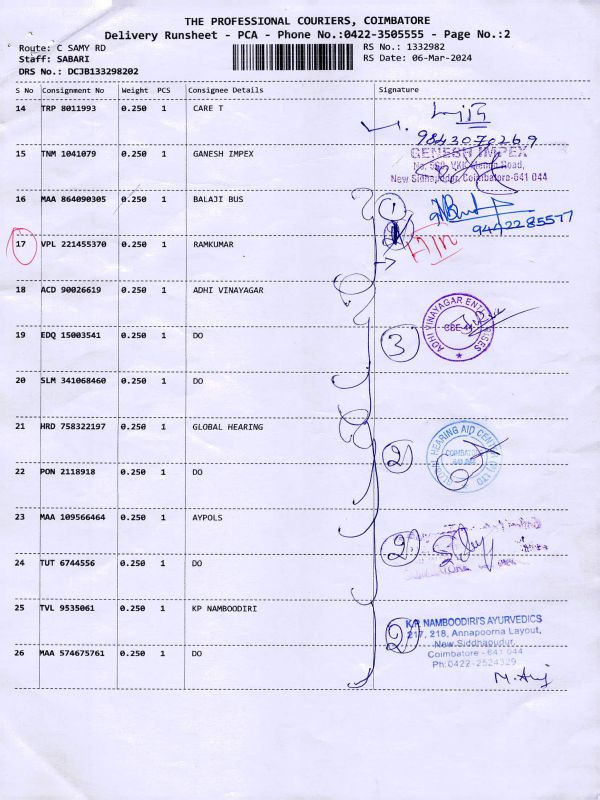 THE PROFESSIONAL COURIERS, COIMBATORE
Delivery Runsheet - PCA - Phone No.:0422-3505555 - Page No.:2
Route: C SAMY RD
Staff: SABARI
DRS No.: DCJB133298202
RS No.: 1332982
RS Date: 06-Mar-2024
S No Consignment No Weight PCS Consignee Details Signature
14 TRP 8011993 0.250 1 CARE T
9843070269
15 TNM 1041079 0.250 1 GANESH IMPEX
GENESH IMPEX
Road,
New Sidhapudur, Coimbatore-641 044
16 MAA 864090305 0.250 1 BALAJI BUS 1
9442285577
17 VPL 221455370 0.250 1 RAMKUMAR
18 ACD 90026619 0.250 1 ADHI VINAYAGAR
ADHI VINAYAGAR ENTERPRISES
19 EDQ 15003541 0.250 1 DO 3
20 SLM 341068460 0.250 1 DO
21 HRD 758322197 0.250 1 GLOBAL HEARING 2
22 PON 2118918 0.250 1 DO
23 MAA 109566464 0.250 1 AYPOLS 2
24 TUT 6744556 0.250 1 DO
25 TVL 9535061 0.250 1 KP NAMBOODIRI 2
K.P. NAMBOODIRI'S AYURVEDICS
217, 218, Annapoorna Layout,
New Siddhapudur,
Coimbatore - 641 044
Ph:0422-2524329
26 MAA 574675761 0.250 1 DO